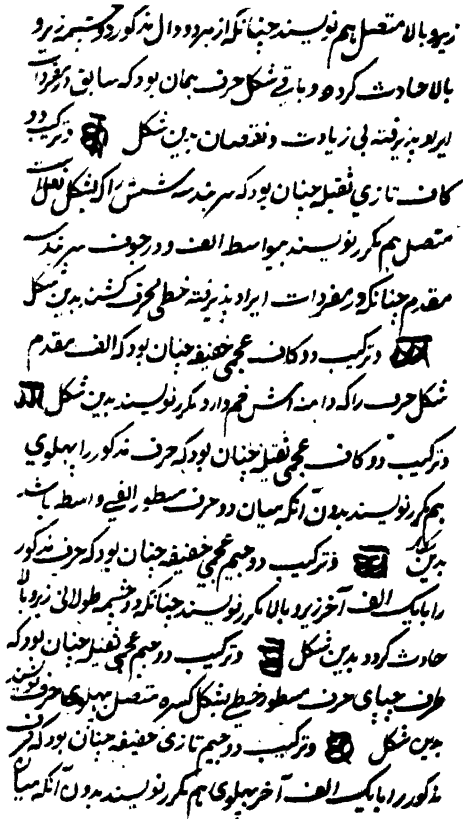 زیر و بالا متصل هم نویسند چنانکه از هر دو دال مذکور دو چشم زیر و
بالا حادث گردد و باقی شکل حرف همان بود که سابق در مفردات
ایراد پذیرفته بی زیادت و نقصان بدین شکل و ترکیب دو
کاف تازی ثقیله چنان بود که هندسه شش را که بشکل نعل است
متصل هم مکرر نویسند بیواسط الف و در جوف هر هندسه
مقدم چنانکه در مفردات ایراد پذیرفته خطی محرف کشند بدین شکل
و ترکیب دو کاف عجمی خفیفه چنان بود که الف مقدم
شکل حرف را که دامنه اش خم دارد مکرر نویسند بدین شکل
و ترکیب دو کاف عجمی ثقیله چنان بود که حرف مذکور را پهلوی
هم مکرر نویسند بدون آنکه میان دو حرف مسطور الفی واسطه باشد
بدین شکل و ترکیب دو جیم عجمی خفیفه چنان بود که حرف مذکور
را با یک الف آخر زیر و بالا مکرر نویسند چنانکه دو چشم طولانی زیر و بالا
حادث گردد بدین شکل و ترکیب دو جیم عجمی ثقیله چنان بود که
طرف چپای حرف مسطور خطی بشکل کسره متصل پهلوی حرف نویسند
بدین شکل و ترکیب دو جیم تازی خفیفه چنان بود که حرف
مذکور را با یک الف آخر پهلوی هم مکرر نویسند بدون آنکه میان